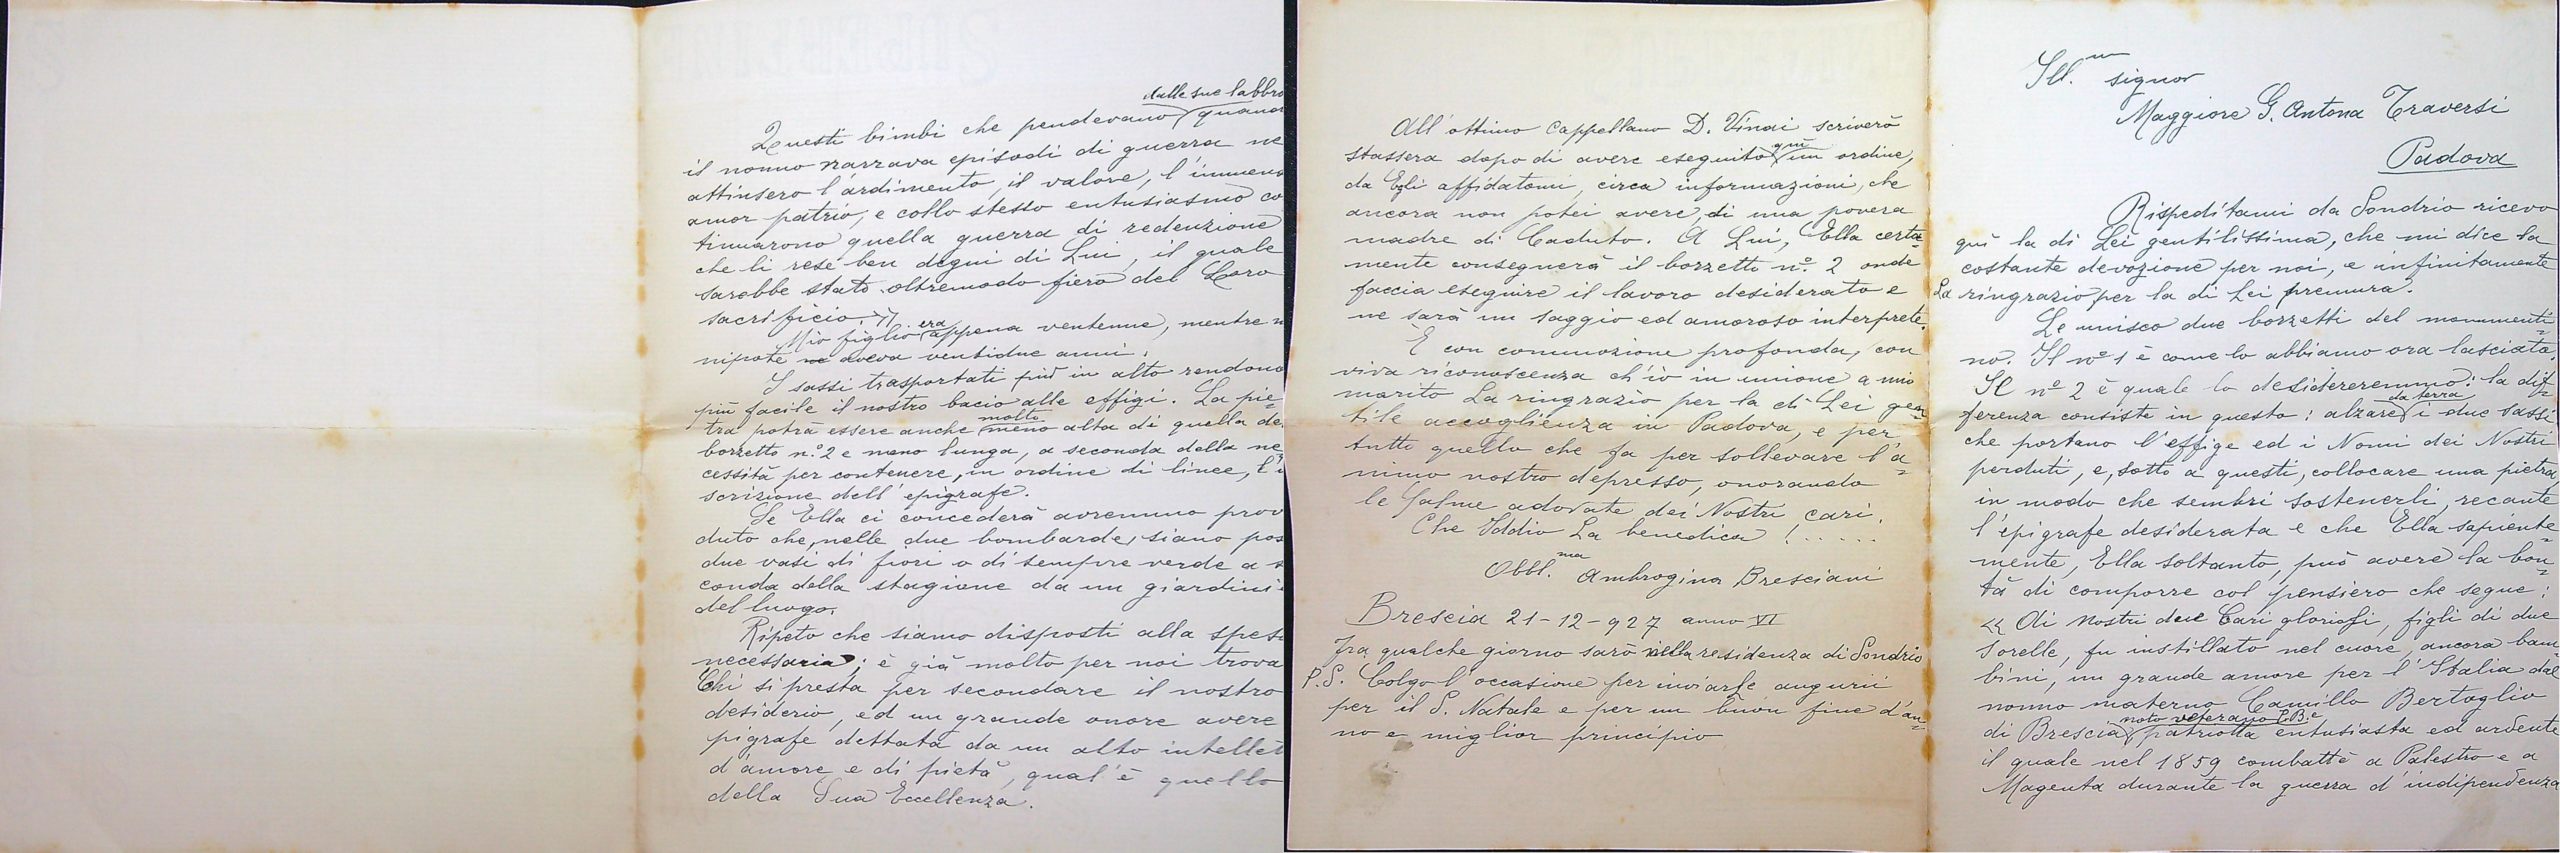 Ill.mo signor
Maggiore G. Antona Traversi
Padova
Rispeditami da Sondrio ricevo
quì la di Lei gentilissima, che mi dice la
costante devozione per noi, e infinitamente
La ringrazio per la di Lei premura.
Le unisco due bozzetti del monumenti=
no. Il nº 1 è come lo abbiamo ora lasciato.
Il nº 2 è quale lo desidereremmo: la dif=
ferenza consiste in questo: alzare da terra i due sassi
che portano l'effige ed i Nomi dei Nostri
perduti, e, sotto a questi, collocare una pietra,
in modo che sembri sostenerli, recante
l'epigrafe desiderata e che Ella sapiente=
mente, Ella soltanto, può avere la bon=
tà di comporre col pensiero che segue:
<< Ai nostri due Cari gloriosi, figli di due
sorelle, fu instillato nel cuore, ancora bam=
bini, un grande amore per l'Italia dal
nonno materno Camillo Bertoglio
di Brescia, noto veterano patriotta entusiasta ed ardente
il quale nel 1859 combattè a Palestro e a
Magenta durante la guerra d'indipendenza
Questi bimbi che pendevano dalle sue labbra quand
il nonno narrava episodi di guerra ne
attinsero l'ardimento, il valore, l'immens
amor patrio; e collo stesso entusiasmo co
tinuarono quella guerra di redenzione
che li rese ben degni di Lui, il quale
sarebbe stato oltremodo fiero del Loro
sacrificio. >>
Mio figlio era appena ventenne, mentre m
nipote ne aveva ventidue anni.
I sassi trasportati più in alto rendono
più facile il nostro bacio alle effigi. La pie=
tra potrà essere anche molto meno alta di quella de
bozzetto n.º 2 e meno lunga, a seconda della ne
cessità per contenere, in ordine di linee, l'i
scrizione dell'epigrafe.
Se Ella ci concederà avremmo prov
duto che, nelle due bombarde, siano pos
due vasi di fiori o di sempre verde a s
conda della stagione da un giardini
del luogo.
Ripeto che siamo disposti alla spes
necessaria; è già molto per noi trova
Chi si presta per secondare il nostro
desiderio, ed un grande onore avere
pigrafe dettata da un alto intellet
d'amore e di pietà, qual'è quello
della Sua Eccellenza.
All'ottimo Cappellano D. Vinai scriverò
stassera dopo di avere eseguito quì un ordine,
da Egli affidatomi, circa informazioni, che
ancora non potei avere, di una povera
madre di Caduto. A Lui, Ella certa=
mente consegnerà il bozzetto nº. 2 onde
faccia eseguire il lavoro desiderato e
ne sarà un saggio ed amoroso interprete.
È con commozione profonda, con
viva riconoscenza ch'io in unione a mio
marito La ringrazio per la di Lei gen=
tile accoglienza in Padova, e per
tutto quello che fa per sollevare l'a=
nimo nostro depresso, onorando
le Salme adorate dei Nostri cari.
Che Iddio La benedica! . . . . .
Obbl.ma Ambrogina Bresciani
Brescia 21-12-927 anno VI
Fra qualche giorno sarò nella residenza di Sondrio
P.S. Colgo l'occasione per inviarLe augurii
per il S. Natale e per un buon fine d'an=
no e miglior principio